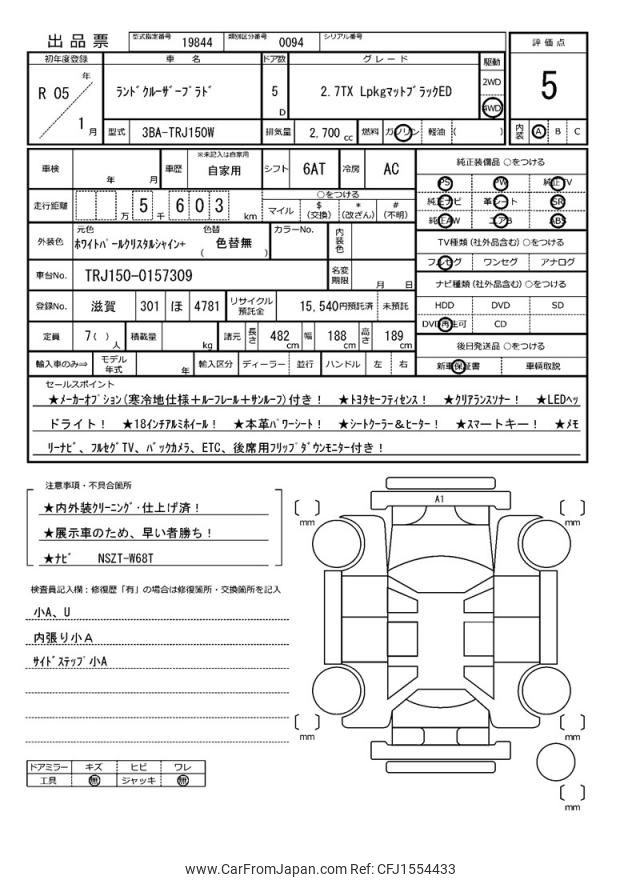 出品票 型式指定番号 19844 類別区分番号 0094 シリアル番号
初年度登録 車名 ドア数 グレード 駆動 評価点
R 05 年 1 月 ランドクルーザープラド 5 D 2.7TX LpkgマットブラックED 2WD 4WD 5
型式 3BA-TRJ150W 排気量 2,700 cc 燃料 ガソリン 軽油 ( ) 内装 A B C
車検 年 月 車歴 ※未記入は自家用 自家用 シフト 6AT 冷房 AC 純正装備品 ○をつける
PS PW 純正TV
走行距離 万 5 千 6 0 3 km ○をつける 純正ナビ 革シート SR
マイル $ (交換) * (改ざん) # (不明) 純正AW エアB ABS
外装色 元色 ホワイトパールクリスタルシャイン+ 色替 ( 色替無 ) カラーNo. 内装色 TV種類 (社外品含む) ○をつける
フルセグ ワンセグ アナログ
車台No. TRJ150-0157309 名変期限 月 日 ナビ種類 (社外品含む) ○をつける
登録No. 滋賀 301 ほ 4781 リサイクル預託金 15,540円預託済 未預託 HDD DVD SD
DVD再生可 CD
定員 7( ) 人 積載量 kg 諸元 長さ 482 cm 幅 188 cm 高さ 189 cm 後日発送品 ○をつける
輸入車のみ⇒ モデル年式 年 輸入区分 ディーラー 並行 ハンドル 左 右 新車保証書 車輌取説
セールスポイント
★メーカーオプション(寒冷地仕様+ルーフレール+サンルーフ)付き! ★トヨタセーフティセンス! ★クリアランスソナー! ★LEDヘッ
ドライト! ★18インチアルミホイール! ★本革パワーシート! ★シートクーラー&ヒーター! ★スマートキー! ★メモ
リーナビ、フルセグTV、バックカメラ、ETC、後席用フリップダウンモニター付き!
注意事項・不具合箇所
★内外装クリーニング・仕上げ済!
★展示車のため、早い者勝ち!
★ナビ NSZT-W68T
A1
mm
mm
検査員記入欄:修復歴「有」の場合は修復箇所・交換箇所を記入
小A、U
内張り小A
サイドステップ小A
mm
mm
mm
ドアミラー キズ ヒビ ワレ
工具 無 ジャッキ 無
www.CarFromJapan.com Ref: CFJ1554433